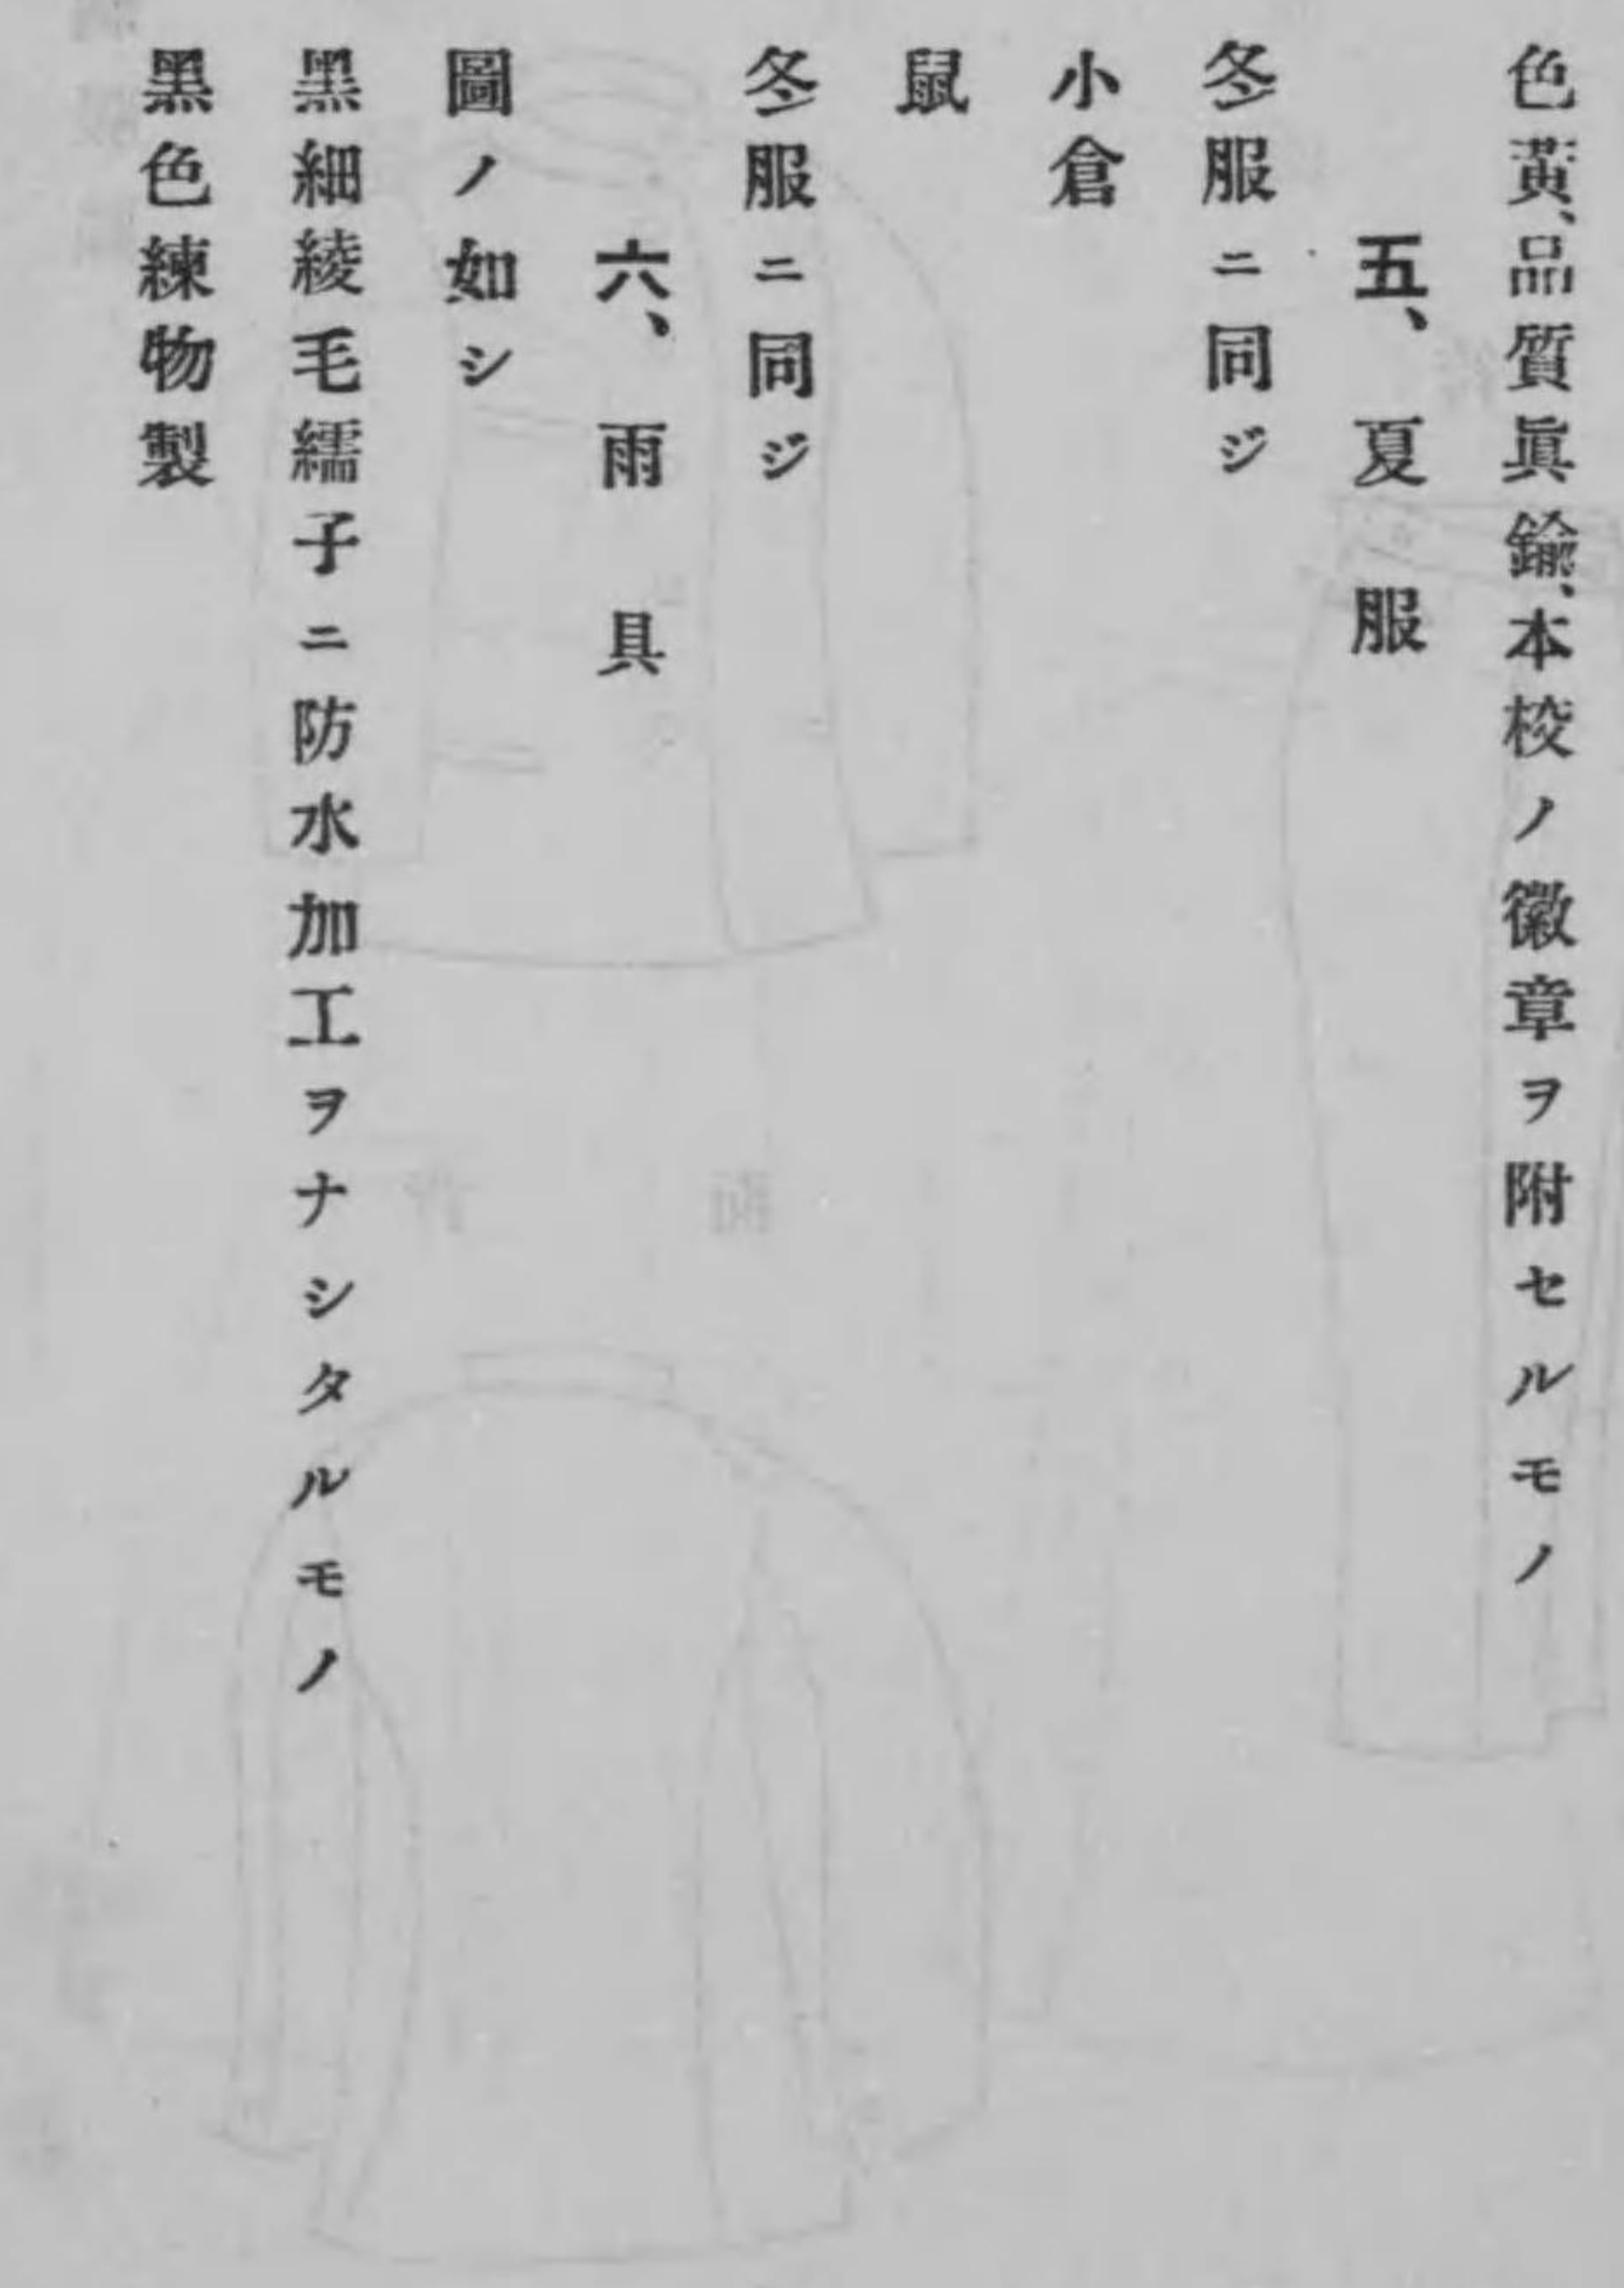 色黃、品質眞鍮、本校ノ徽章ヲ附セルモノ
五、夏服
冬服ニ同ジ
小倉
鼠
冬服ニ同ジ
六、雨具
圖ノ如シ
黑細綾毛繻子ニ防水加工ヲナシタルモノ
黑色練物製